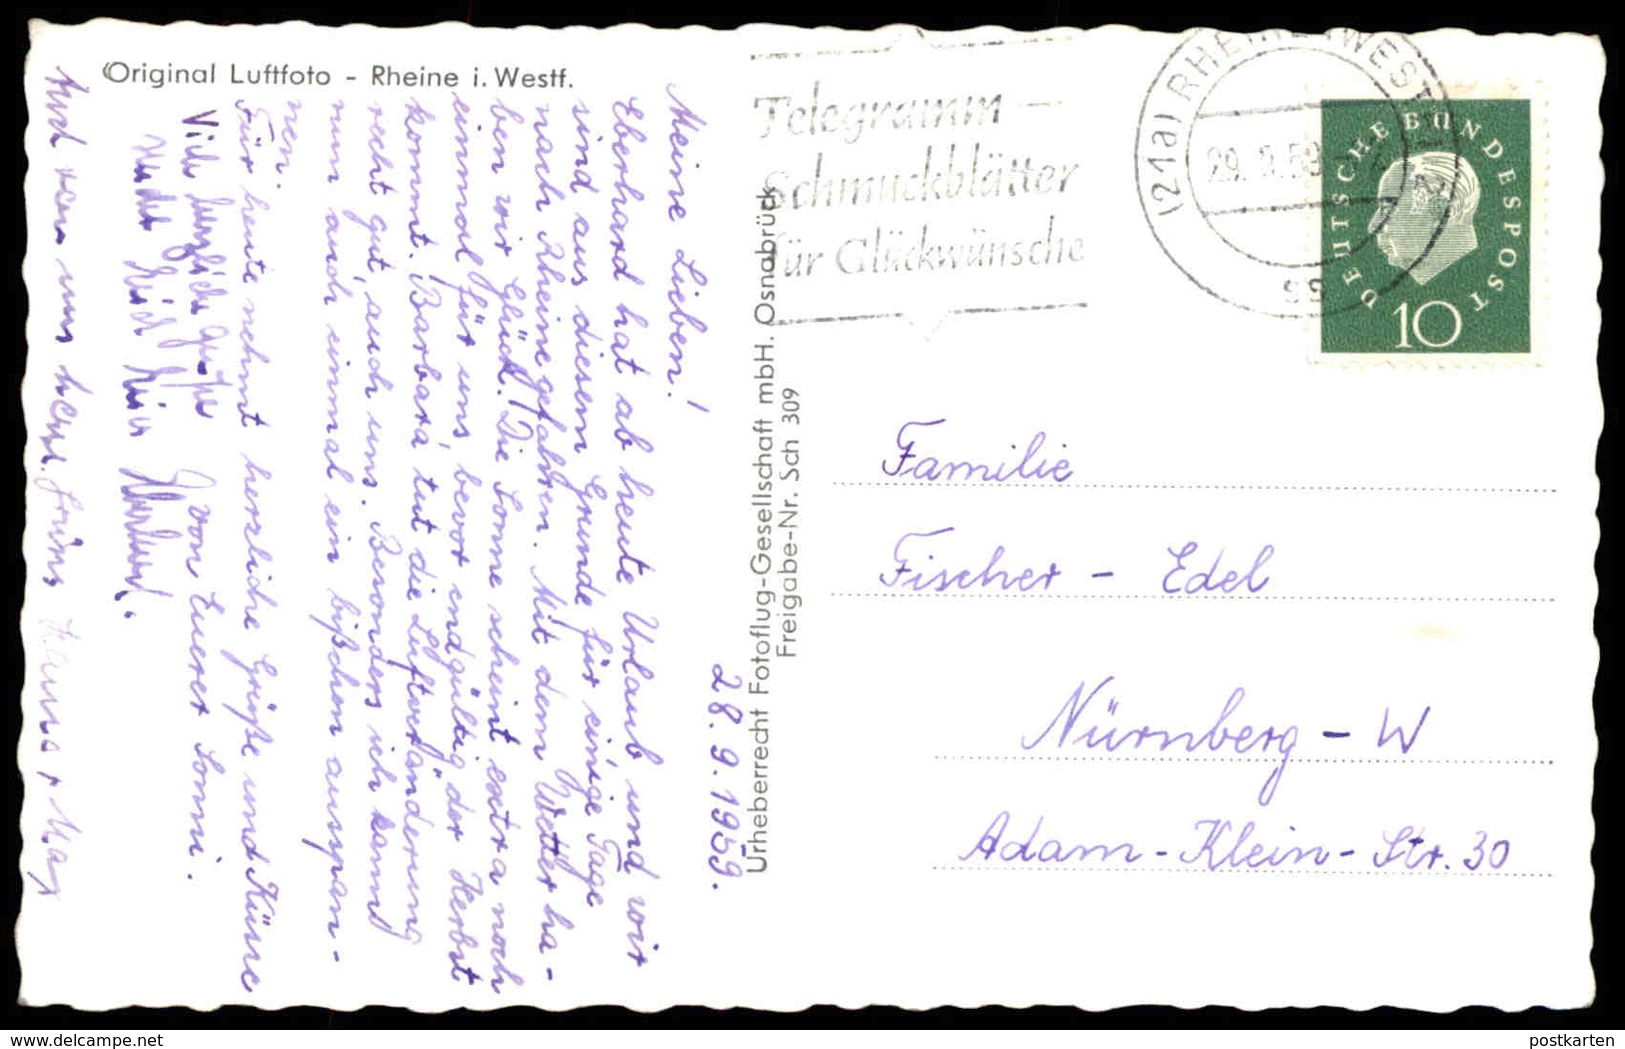 Original Luftfoto - Rheine i. Westf.
28.9.1959.
Meine Lieben!
Eberhard hat ab heute Urlaub und wir
sind aus diesem Grunde für einige Tage
nach Rheine gefahren. Mit dem Wetter ha-
ben wir Glück. Die Sonne scheint extra noch
einmal für uns, bevor endgültig der Herbst
kommt. Barbara tut die Luftveränderung
recht gut, auch uns. Besonders ich kann
nun auch einmal ein bißchen auspan-
nen.
Für heute nehmt herzliche Grüße und Küsse
von Eurer Sonni.
Viele herzliche Grüße
Euch
Urheberrecht Fotoflug-Gesellschaft mbH. Osnabrück
Freigabe-Nr. Sch 309
Telegramm -
Schmuckblätter
für Glückwünsche
(21a) RHEINE (WESTF)
29. 9.59
DEUTSCHE BUNDESPOST
10
Familie
Fischer - Edel
Nürnberg - W
Adam-Klein-Str. 30
delcampe.net
postkarten